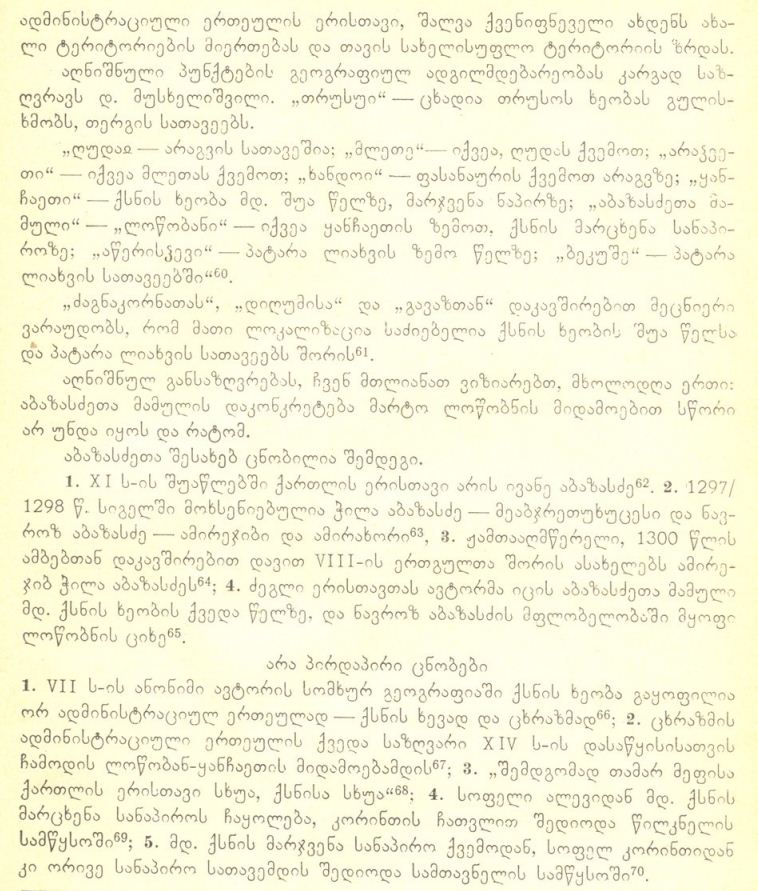 ადმინისტრაციული ერთეულის ერისთავი, შალვა ქვენიფნეველი ახდენს ახა-
ლი ტერიტორიების მიერთებას და თავის სახელისუფლო ტერიტორიის ზრდას.
აღნიშნული პუნქტების გეოგრაფიულ ადგილმდებარეობას კარგად საზ-
ღვრავს დ. მუსხელიშვილი. „თრუსუი“ — ცხადია თრუსოს ხეობას გულის-
ხმობს, თერგის სათავეებს.
„ღუდაჲ — არაგვის სათავეშია; „მლეთე“— იქვეა, ღუდას ქვემოთ; „არაჴვე-
თი“ — იქვეა მლეთას ქვემოთ; „ხანდოი“ — ფასანაურის ქვემოთ არაგვზე; „ყან-
ჩაეთი“ — ქსნის ხეობა მდ. შუა წელზე, მარჯვენა ნაპირზე; „აბაზასძეთა მა-
მული“ — „ლოწობანი“ — იქვეა ყანჩაეთის ზემოთ, ქსნის მარცხენა სანაპი-
როზე; „აწერისჴევი“ — პატარა ლიახვის ზემო წელზე; „ბეკუშე“ — პატარა
ლიახვის სათავეებში“⁶⁰.
„ძაგნაკორნათას“, „დიღუმისა“ და „გავაზთან“ დაკავშირებით მეცნიერი
ვარაუდობს, რომ მათი ლოკალიზაცია საძიებელია ქსნის ხეობის შუა წელსა
და პატარა ლიახვის სათავეებს შორის⁶¹.
აღნიშნულ განსაზღვრებას, ჩვენ მთლიანათ ვიზიარებთ, მხოლოდღა ერთი:
აბაზასძეთა მამულის დაკონკრეტება მარტო ლოწობნის მიდამოებით სწორი
არ უნდა იყოს და რატომ.
აბაზასძეთა შესახებ ცნობილია შემდეგი.
1. XI ს-ის შუაწლებში ქართლის ერისთავი არის ივანე აბაზასძე⁶². 2. 1297/
1298 წ. სიგელში მოხსენიებულია ჭილა აბაზასძე — მეაბჯრეთუხუცესი და ნავ-
როზ აბაზასძე — ამირეჯიბი და ამირახორი⁶³, 3. ჟამთააღმწერელი, 1300 წლის
ამბებთან დაკავშირებით დავით VIII-ის ერთგულთა შორის ასახელებს ამირე-
ჯიბ ჭილა აბაზასძეს⁶⁴; 4. ძეგლი ერისთავთას ავტორმა იცის აბაზასძეთა მამული
მდ. ქსნის ხეობის ქვედა წელზე, და ნავროზ აბაზასძის მფლობელობაში მყოფი
ლოწობნის ციხე⁶⁵.
არა პირდაპირი ცნობები
1. VII ს-ის ანონიმი ავტორის სომხურ გეოგრაფიაში ქსნის ხეობა გაყოფილია
ორ ადმინისტრაციულ ერთეულად — ქსნის ხევად და ცხრაზმად⁶⁶; 2. ცხრაზმის
ადმინისტრაციული ერთეულის ქვედა საზღვარი XIV ს-ის დასაწყისისათვის
ჩამოდის ლოწობან-ყანჩაეთის მიდამოებამდის⁶⁷; 3. „შემდგომად თამარ მეფისა
ქართლის ერისთავი სხუა, ქსნისა სხუა“⁶⁸; 4. სოფელი ალევიდან მდ. ქსნის
მარცხენა სანაპიროს ჩაყოლება, კორინთის ჩათვლით შედიოდა წილკნელის
სამწყსოში⁶⁹; 5. მდ. ქსნის მარჯვენა სანაპირო ქვემოდან, სოფელ კორინთიდან
კი ორივე სანაპირო სათავემდის შედიოდა სამთავნელის სამწყსოში⁷⁰.